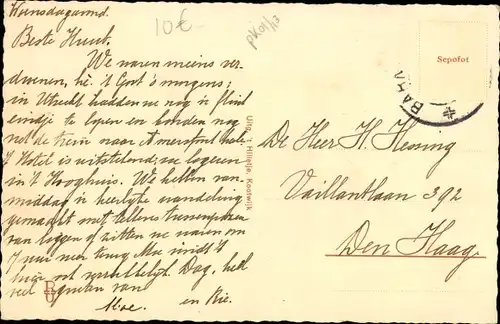 Woensdagavond.
Beste Huub.
We waren ineens ver-
dwenen, hè. 't Gort 's morgens;
in Utrecht hadden we nog 'n flink
eindje te loopen en konden nog
net de trein naar Amersfoort halen
't Hotel is uitstekend, we logeeren
in 't Hooghuis. We hebben van-
middag 'n heerlijke wandeling
gemaakt met
van liggen of zitten we waren om
7 uur weer terug Moe vindt 't
hier ook verrukkelijk. Dag, heel
veel groeten van
Moe. en Rie.
10€
Uitg. 't Hilletje, Kootwijk
Sepofot
BAHN
De Heer H. Hessing
Vaillantlaan 392
Den Haag.